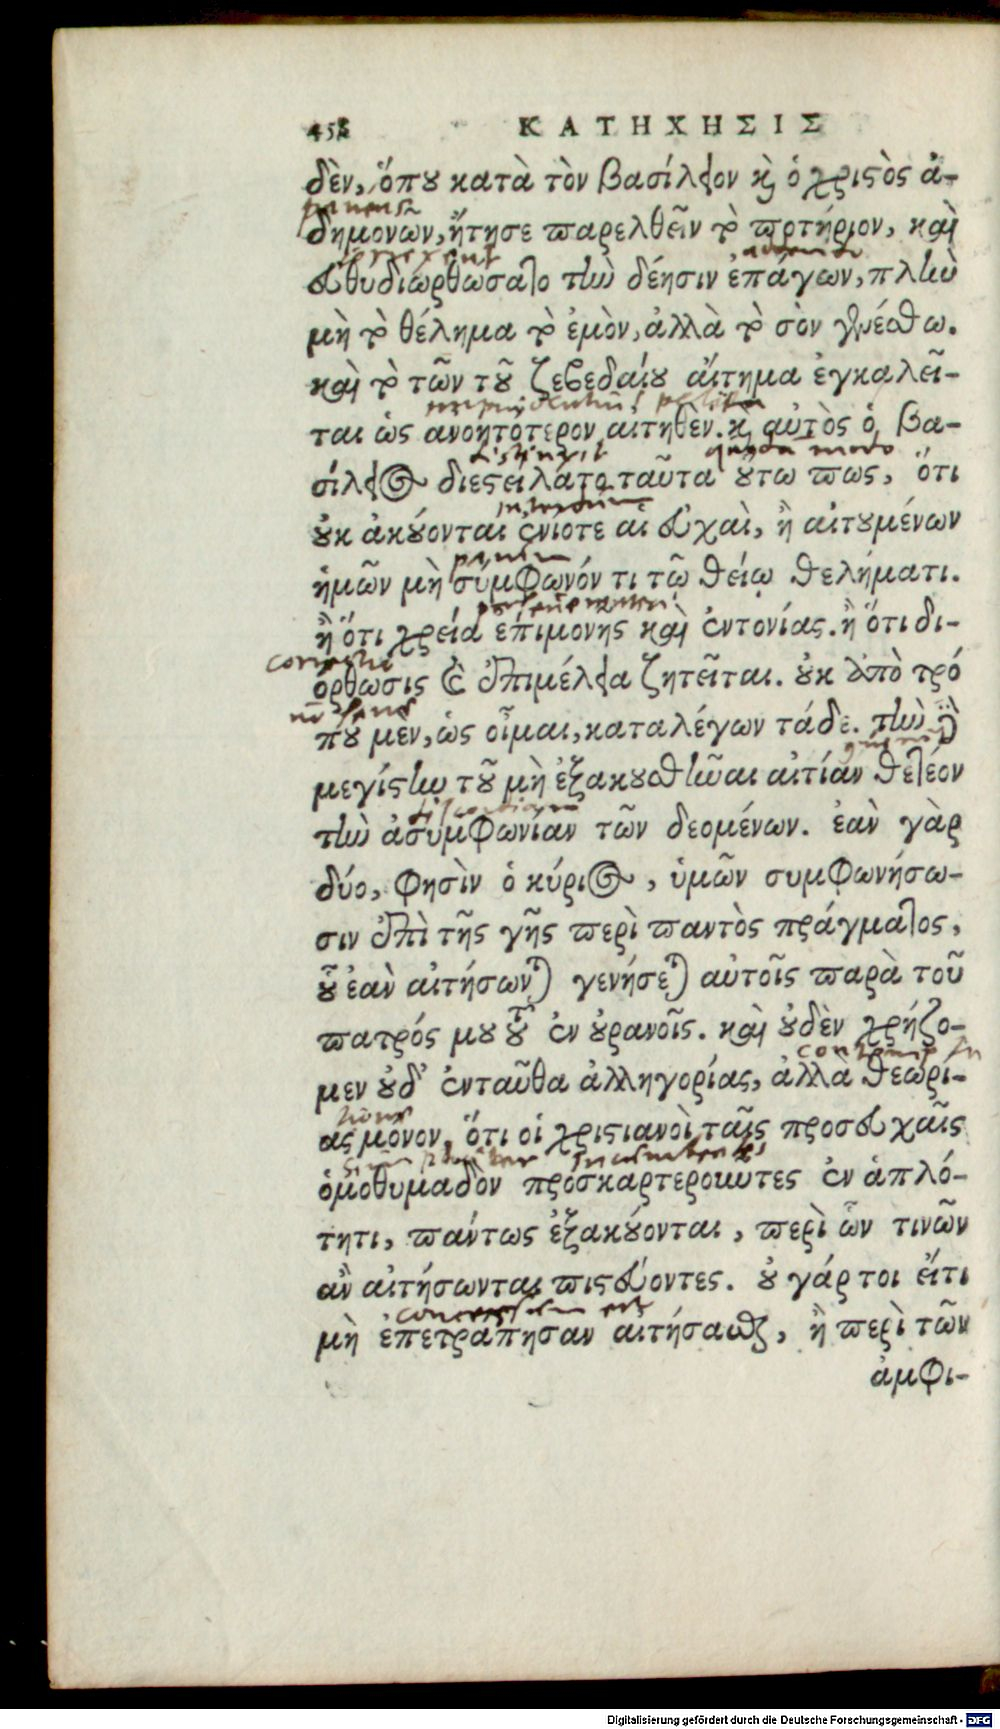 458 ΚΑΤΗΧΗΣΙΣ
δὲν, ὅπου κατὰ τὸν βασίλειον καὶ ὁ χριστὸς ἀ-
δημονῶν, ᾔτησε παρελθεῖν τὸ ποτήριον, καὶ
εὐθὺ διωρθώσατο τὴν δέησιν ἐπάγων, πλὴν
μὴ τὸ θέλημα τὸ ἐμὸν, ἀλλὰ τὸ σὸν γενέσθω.
καὶ τὸ τῶν τοῦ ζεβεδαίου αἴτημα ἐγκαλεῖ-
ται ὡς ἀνοητότερον αἰτηθὲν. καὶ αὐτὸς ὁ βα-
σίλειος διεστείλατο ταῦτα οὕτω πως, ὅτι
οὐκ ἀκούονται ἐνίοτε αἱ εὐχαὶ, ἢ αἰτουμένων
ἡμῶν μὴ σύμφωνόν τι τῷ θείῳ θελήματι.
ἢ ὅτι χρεία ἐπιμονῆς καὶ ἐντονίας. ἢ ὅτι δι-
όρθωσις καὶ ἐπιμέλεια ζητεῖται. οὐκ ἀπὸ τρό
που μὲν, ὡς οἶμαι, καταλέγων τάδε. τὴν δὲ
μεγίστην τοῦ μὴ ἐξακουσθῆναι αἰτίαν θετέον
τὴν ἀσυμφωνίαν τῶν δεομένων. ἐαν γὰρ
δύο, φησὶν ὁ κύριος, ὑμῶν συμφωνήσω-
σιν ἐπὶ τῆς γῆς περὶ παντὸς πράγματος,
οὗ ἐὰν αἰτήσωνται γενήσεται αὐτοῖς παρὰ τοῦ
πατρός μου τοῦ ἐν οὐρανοῖς. καὶ οὐδὲν χρήζο-
μεν οὐδ' ἐνταῦθα ἀλληγορίας, ἀλλὰ θεωρί-
ας μόνον, ὅτι οἱ χριστιανοὶ ταῖς προσευχαῖς
ὁμοθυμαδὸν προσκαρτεροῦντες ἐν ἁπλό-
τητι, πάντως ἐξακούονται, περὶ ὧν τινῶν
ἂν αἰτήσωνται πιστεύοντες. οὐ γάρ τοι εἴτι
μὴ ἐπετράπησαν αἰτήσασθαι, ἢ περὶ τῶν
ἀμφι-
Digitalisierung gefördert durch die Deutsche Forschungsgemeinschaft - DFG